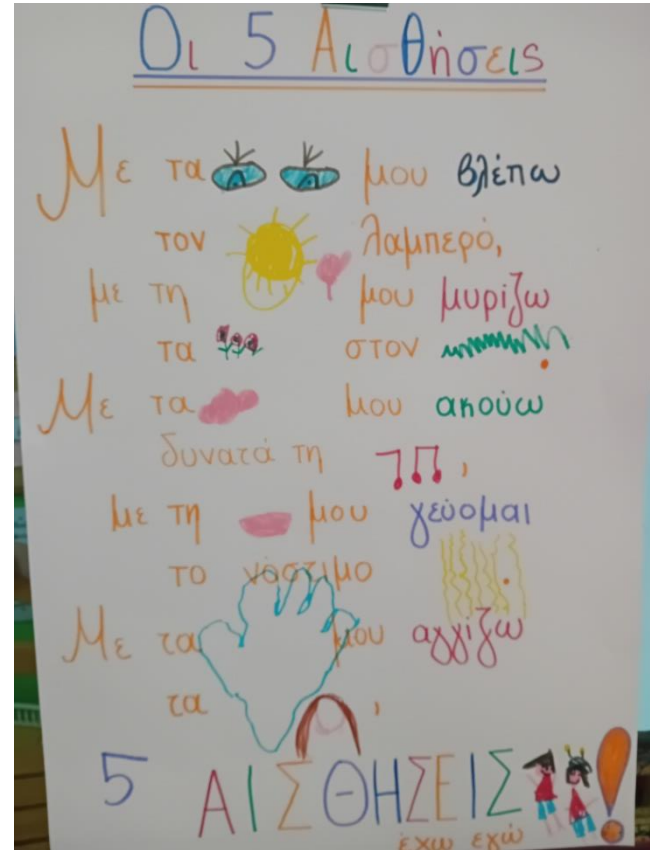 Οι 5 Αισθήσεις
Με τα μου βλέπω
τον λαμπερό,
με τη μου μυρίζω
τα στον .
Με τα μου ακούω
δυνατά τη ,
με τη μου γεύομαι
το νόστιμο .
Με τα μου αγγίζω
τα ,
5 ΑΙΣΘΗΣΕΙΣ !
έχω εχώ